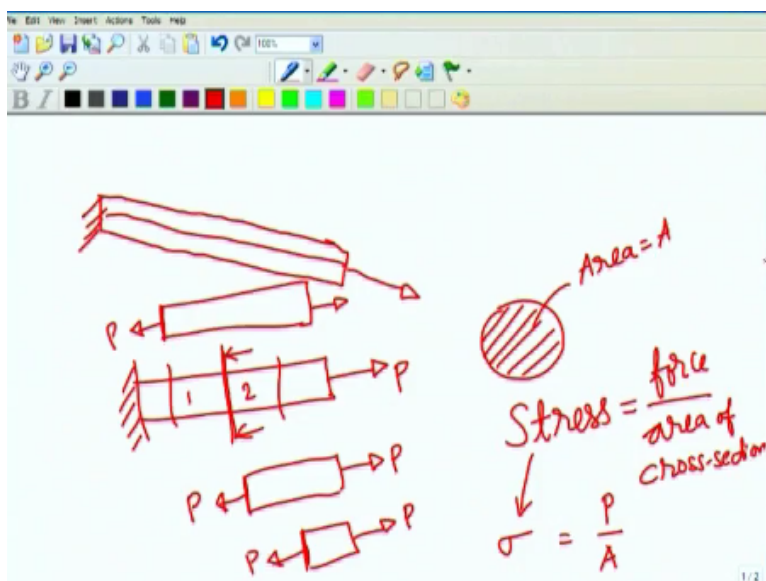 File Edit View Insert Actions Tools Help
100%
B I
Area=A
P
P
1
2
P
P
P
P
Stress = force
area of
cross-section
σ = P
A
1/2